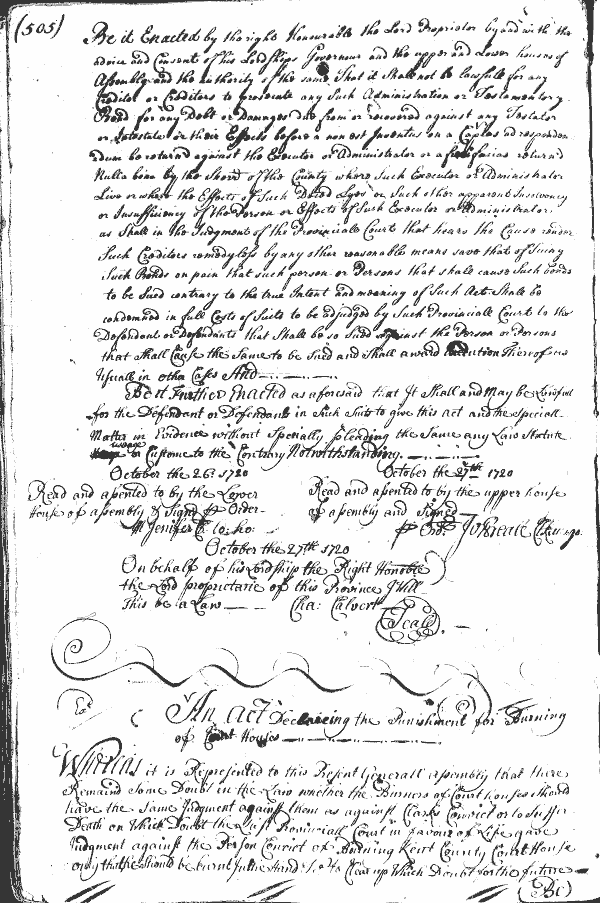 (505)
Be it Enacted by the right Honourable the Lord Proprietor by and with the
advice and Consent of his Lordships Governour and the upper and Lower houses of
Assembly and the authority of the same That it Shall not be lawfull for any
Creditor or Creditors to prosecute any Such Administration or Testamentory
Bond for any Debt or Damages due from or recovered against any Testator
or Intestate or their Effects before a non est Inventus on a Capias ad responden
dum be returned against the Executor or Administrator or a fieri facias returnd
Nulla bona by the Sherif of the County where Such Executor or Administrator
Live or where the Effects of Such Dec'ed Lyes or Such other apparent Insolvency
or Insufficiency of the Person or Effects of Such Executor or Administrator
as Shall in the Judgment of the Provinciale Court that hears the Cause render
Such Creditors remedyless by any other reasonable means save that of Suing
Such Bonds on pain that such person or Persons that shall cause Such bonds
to be Sued contrary to the true Intent and meaning of Such Act Shall be
condemned in full Costs of Suits to be adjudged by Such Provinciale Court to the
Defendant or Defendants that Shall be so Sued against the Person or Persons
that shall Cause the Same to be Sued and Shall award Execution thereof as
Usuall in other Cases And
Be it Further Enacted as aforesaid that It Shall and May be Lawfull
for the Defendant or Defendants in Such Suits to give this act and the Speciall
Matter in Evidence without Specially pleading the Same any Law Statute
usage or Custome to the Contrary Notwithstanding.
October the 26: 1720 October the 27th 1720
Read and asented to by the Lower Read and asented to by the upper house
House of assembly & Signd p Order of assembly and Signed
M Jenifer Cl. lo: ho: p Ord.
October the 27th 1720
On behalf of his Lordship the Right Honoble
the Lord proprietarie of this Province I Will
This be a Law Cha: Calvert
Seale
An Act Declareing the Punishment for Burning
of Court Houses
Whereas it is Represented to this Present Generall assembly that there
Remaind Some Doubt in the Law whether the Burners of Court houses should
have the Same Judgment against them as against Clarks Convict or to Suffer
Death on Which Doubt the Last Provinciall Court in favour of Life gave
Judgment against the Person Convict of Burning Kent County Court House
only that he Should be burnt In the Hand To Clear up Which Doubt for the future
(Be)